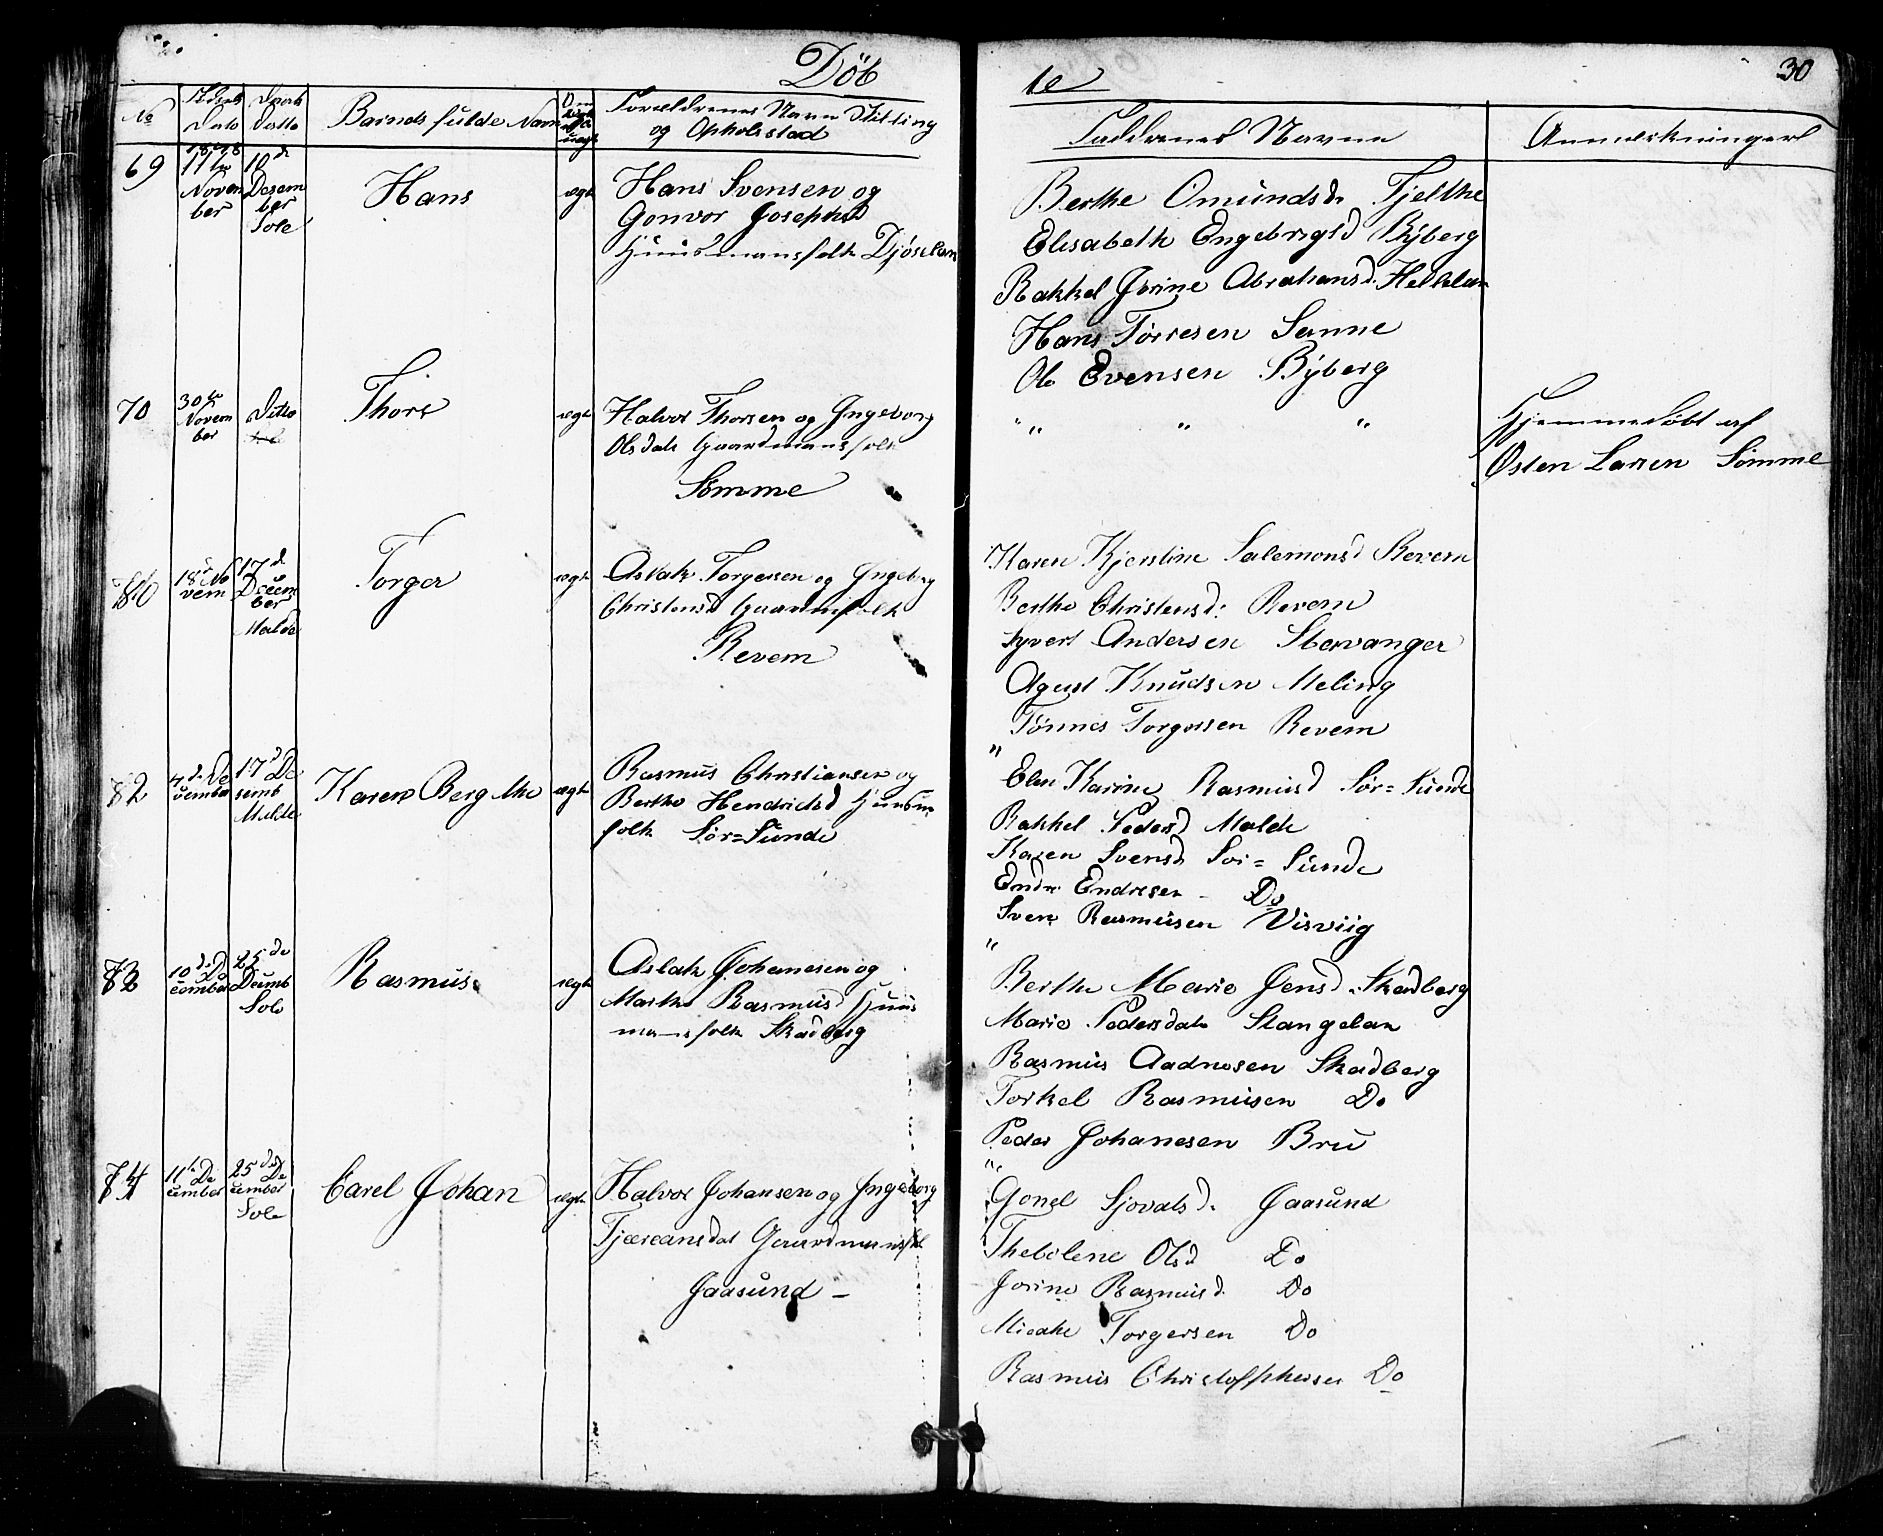 Döb
te
30
No
Føds
Dato
Daab
Ditto
Barnets fulde Navn
Forældrenes Navn Stilling
og Opholsstad
Faddrenes Navne
Anmerkninger
69
1848
11te
Novem
ber
10de
Desem
ber
Sole
Hans
ægte
Hans Svensen og
Gonvor Josephsd
Huusmansfolk Djöseland
Berthe Omundsd. Tjelthe
Elisabeth Engebrigtsd Byberg
Rakkel Jorine Abrahamsd. Helleland
Hans Torresen Sanne
Ole Evensen Byberg
70
30te
Novem
ber
Ditto
Thore
ægte
Halvor Thorsen og Ingeborg
Olsdatr Gaardmansfolk
Sömme
" " " "
Hjemmedöbt af
Osten Larsen Sömme
18de No
vem
17de
Decem
ber
Malde
Torger
ægte
Aslak Torgersen og Ingeborg
Christensd Gaardmfolk
Revem
Karen Kjerstine Salemonsd Revem
Berthe Christensd: Revem
Syvert Andersen Stavanger
Agust Knudsen Meling
Tönnes Torgersen Revem
"
72
7de De
cember
17de De
cemb
Malde
Karen Bergithe
ægte
Rasmus Christiansen og
Berthe Hendriksd Huusm
folk Sör=Sunde
Elen Karine Rasmusd Sör=Sunde
Rakkel Pedersd Malde
Karen Svensd Sör=Sunde
Endre Endresen - Do
Sven Rasmusen Visviig
"
73
10de De
cember
25de
Decemb
Sole
Rasmus
ægte
Aslak Johanesen og
Marthe Rasmusd Huus
mansfolk Skadberg
Berthe Marie Jensd. Skadberg
Marie Pedersdatr Stangelan
Rasmus Aadnesen Skadberg
Torkel Rasmusen Do
Peder Johanesen Bru
"
74
11te De
cember
25de De
cember
Sole
Carel Johan
ægte
Halvor Johansen og Ingeborg
Tjæreansdat Gaardmansfolk
Jaasund -
Gonel Sjovalsd. Jaasund
Thebolene Olsd Do
Jorine Rasmusd. Do
Micale Torgersen Do
Rasmus Christoffhersen Do